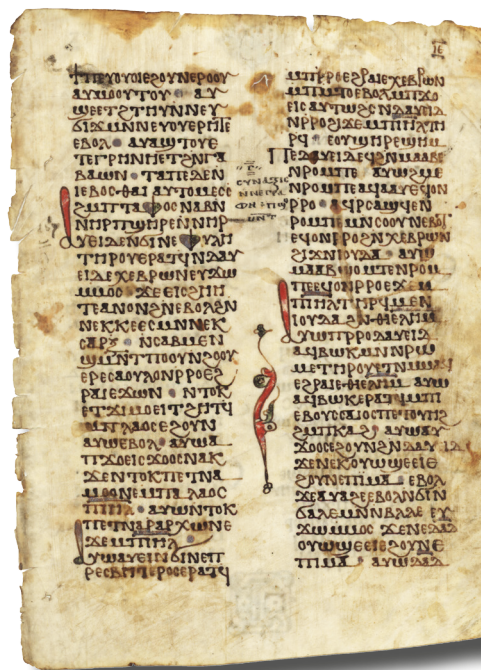 ⲓⲉ
ϯⲡⲉⲩⲟⲩⲟⲓⲉϩⲟⲩⲛⲉⲣⲟⲟⲩ
ⲁⲩⲙⲟⲟⲩⲧⲟⲩ · ⲁⲩ
ϣⲉⲉⲧϩⲧⲏⲩⲛⲛⲉⲩ
ϭⲓϫⲙⲛⲛⲉⲩⲟⲩⲉⲣⲏⲧⲉ
ⲉⲃⲟⲗ · ⲁⲩⲁϣⲧⲟⲩⲉ
ⲧⲉⲅⲣⲏⲛⲏⲉⲧϩⲛⲅⲁ
ⲃⲁⲱⲛ · ⲧⲁⲡⲉⲇⲉⲛ
ⲓⲉⲃⲟⲥⲑⲁⲓ ⲁⲩⲧⲟⲙⲉⲥⲥ
ϩⲙⲡⲧⲁⲫⲟⲥⲛⲁⲃⲛ
ⲛⲏⲣⲡϣⲏⲣⲉⲛⲛⲏⲣ
ⲁⲩⲉⲓⲇⲉⲛϭⲓⲛⲉⲫⲩⲗⲏ
ⲧⲏⲣⲟⲩⲉⲣⲁⲧϥⲛⲇⲁⲩ
ⲉⲓⲇⲉⲭⲉⲃⲣⲱⲛⲉⲩϫⲱ
ⲙⲙⲟⲥ ϫⲉⲉⲓⲥϩⲏⲏ
ⲧⲉⲁⲛⲟⲛϩⲛⲉⲃⲟⲗϩⲛ
ⲛⲉⲕⲕⲉⲉⲥⲙⲛⲛⲉⲕ
ⲥⲁⲣⲝ · ⲛⲥⲁϥⲙⲉⲛ
ϣⲙⲛⲧⲡⲟⲟⲩⲛϩⲟⲟⲩ
ⲉⲣⲉⲥⲁⲟⲩⲗⲟⲛⲣⲣⲟⲉϩ
ⲣⲁⲓⲉϫⲱⲛ · ⲛⲧⲟⲕ
ⲉⲧϫⲓⲙⲟⲉⲓⲧϩⲏⲧϥ
ⲙⲡⲗⲁⲟⲥⲉϩⲟⲩⲛ
ⲁⲩⲱⲉⲃⲟⲗ · ⲁⲩⲱⲁ
ⲡϫⲟⲉⲓⲥϫⲟⲟⲥⲛⲁⲕ
ϫⲉⲛⲧⲟⲕⲡⲉⲧⲛⲁ
ⲙⲟⲟⲛⲉⲙⲡⲁⲗⲁⲟⲥ
ⲡⲓⲏⲗ · ⲁⲩⲱⲛⲧⲟⲕ
ⲡⲉⲧⲛⲁⲣⲁⲣⲭⲱⲛⲉ
ϫⲉⲙⲡⲓⲏⲗ
ⲁⲩⲱⲁⲩⲉⲓⲛϭⲓⲛⲉⲡ
ⲣⲉⲥⲃⲩⲧⲉⲣⲟⲥⲉⲣⲁⲧϥ
ⲙⲡⲣⲣⲟⲉϩⲣⲁⲓⲉⲭⲉⲃⲣⲱⲛ
ⲙⲡⲙⲧⲟⲉⲃⲟⲗⲙⲡϫⲟ
ⲉⲓⲥⲁⲩⲧⲱϩⲥⲛⲇⲁⲩⲉⲓⲇ
ⲛⲣⲣⲟϩⲓϫⲉⲙⲡⲓⲏⲗⲧⲏ
ⲣϥ · ⲉⲟⲩϣⲏⲣⲉϣⲏⲙ
ⲡⲉⲇⲁⲩⲉⲓⲇⲉϥϩⲛⲙⲁⲁⲃⲉ
ⲛⲣⲟⲙⲡⲉ ⲁⲩⲱϩⲙⲉ
ⲛⲣⲟⲙⲡⲉⲁϥⲁⲁⲩⲉϥⲟⲛ
ⲣⲣⲟ · ⲁϥⲣⲥⲁϣϥⲉⲛ
ⲣⲟⲙⲡⲉⲙⲛⲥⲟⲟⲩⲛⲉⲃⲟⲧ
ⲉϥⲟⲛⲣⲣⲟϩⲛⲭⲉⲃⲣⲱⲛ
ϩⲓϫⲛⲓⲟⲩⲇⲁ · ⲁⲩⲱ
ⲙⲁⲁⲃϣⲟⲙⲧⲉⲛⲣⲟⲙ
ⲡⲉⲉϥⲟⲛⲣⲣⲟⲉϫⲛ
ⲡⲓⲏⲗⲧⲏⲣϥⲙⲛ
ⲓⲟⲩⲇⲁϩⲛⲑⲓⲉⲗⲏⲙ
ⲁⲩⲱⲡⲣⲣⲟⲇⲁⲩⲉⲓⲇ
ⲁϥⲃⲱⲕⲙⲛⲛⲣⲱ
ⲙⲉⲧⲏⲣⲟⲩⲉⲧⲛⲙⲙⲁϥ
ⲉϩⲣⲁⲓⲉⲑⲓⲉⲗⲏⲙ ⲁⲩⲱ
ⲁϥⲃⲱⲕⲉⲣⲁⲧϥⲙⲡⲓ
ⲉⲃⲟⲩⲥⲁⲓⲟⲥⲡⲉⲧⲟⲩⲏϩ
ϩⲙⲡⲕⲁϩ ⲁⲩⲱⲁⲩ
ϫⲟⲟⲥⲉϩⲟⲩⲛϩⲛⲇⲁⲩⲉⲓⲇ
ϫⲉⲛⲉⲕⲟⲩⲱϣⲉⲉⲓⲉ
ϩⲟⲩⲛⲉⲡⲓⲙⲁ · ⲉⲃⲟⲗ
ϫⲉⲁⲩⲁϩⲉⲉⲃⲟⲗⲛϭⲓⲛ
ϭⲁⲗⲉⲙⲛⲛⲃⲗⲗⲉ ⲉⲩ
ϫⲱⲙⲙⲟⲥ ϫⲉⲛⲉⲇⲁⲇ
ⲟⲩⲱϣⲉⲉⲓⲉϩⲟⲩⲛⲉ
ⲡⲓⲙⲁ · ⲁⲩⲱⲇⲁⲇ